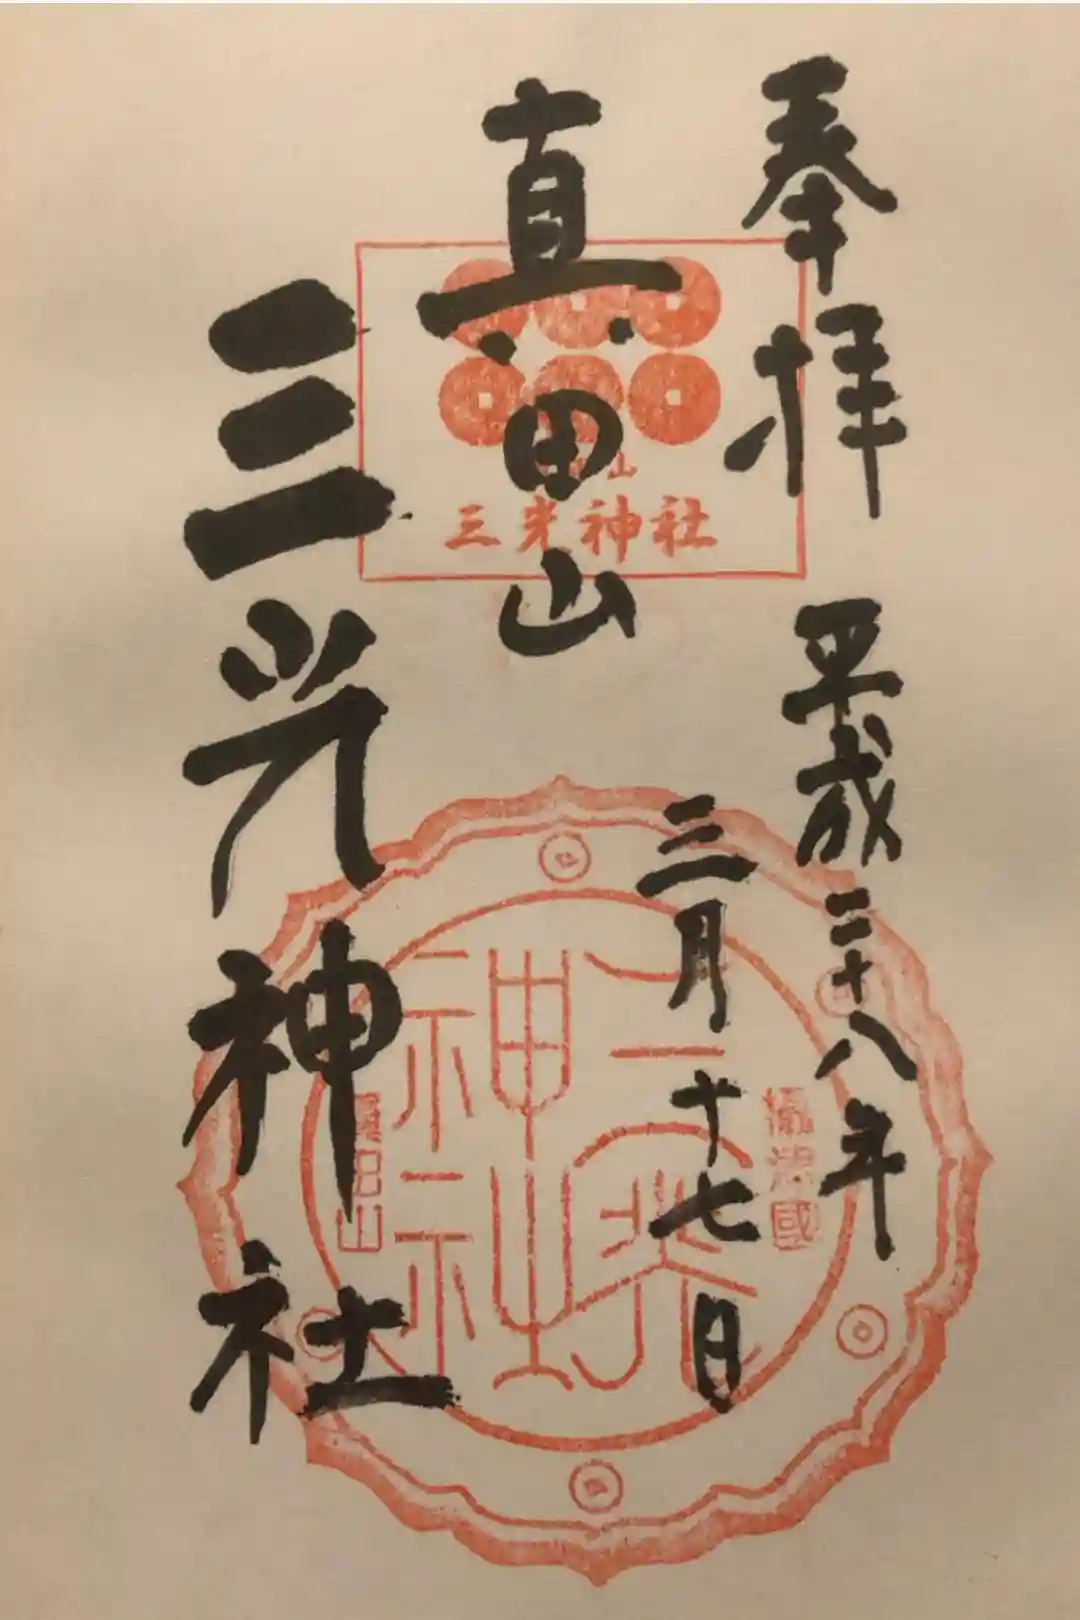 奉拝
平成二十八年
三月十七日
真田山
三光神社
三光神社
攝津國
三光神社